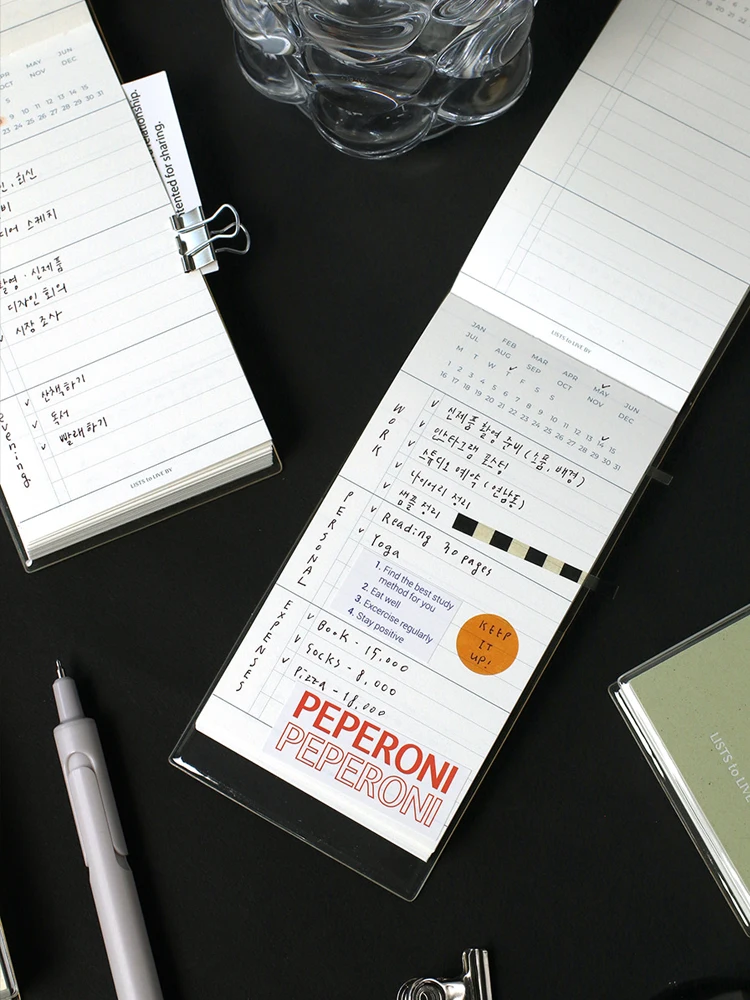 MAY JUN
OCT NOV DEC
S
9 10 11 12 13 14 15
23 24 25 26 27 28 29 30 31
ented for sharing.
스케치
촬영 · 신제품
디자인 회의
✓ 시장 조사
evening
✓ 산책하기
✓ 독서
✓ 빨래하기
LISTS to LIVE BY
LISTS to LIVE BY
JAN FEB MAR APR MAY JUN
JUL AUG SEP OCT NOV DEC
M T W T F S S
1 2 3 4 5 6 7 8 9 10 11 12 13 14 15
16 17 18 19 20 21 22 23 24 25 26 27 28 29 30 31
WORK
✓ 신제품 촬영 준비 (소품, 배경)
✓ 인스타그램 포스팅
✓ 스튜디오 예약 (연남동)
✓ 다이어리 정리
✓ 샘플 정리
PERSONAL
✓ Reading 30 pages
✓ Yoga
1. Find the best study
method for you
2. Eat well
3. Excercise regularly
4. Stay positive
KEEP
IT
UP!
EXPENSES
✓ Book - 15,000
✓ Socks - 8,000
✓ Pizza - 18,000
PEPERONI
PEPERONI
LISTS to LIVE